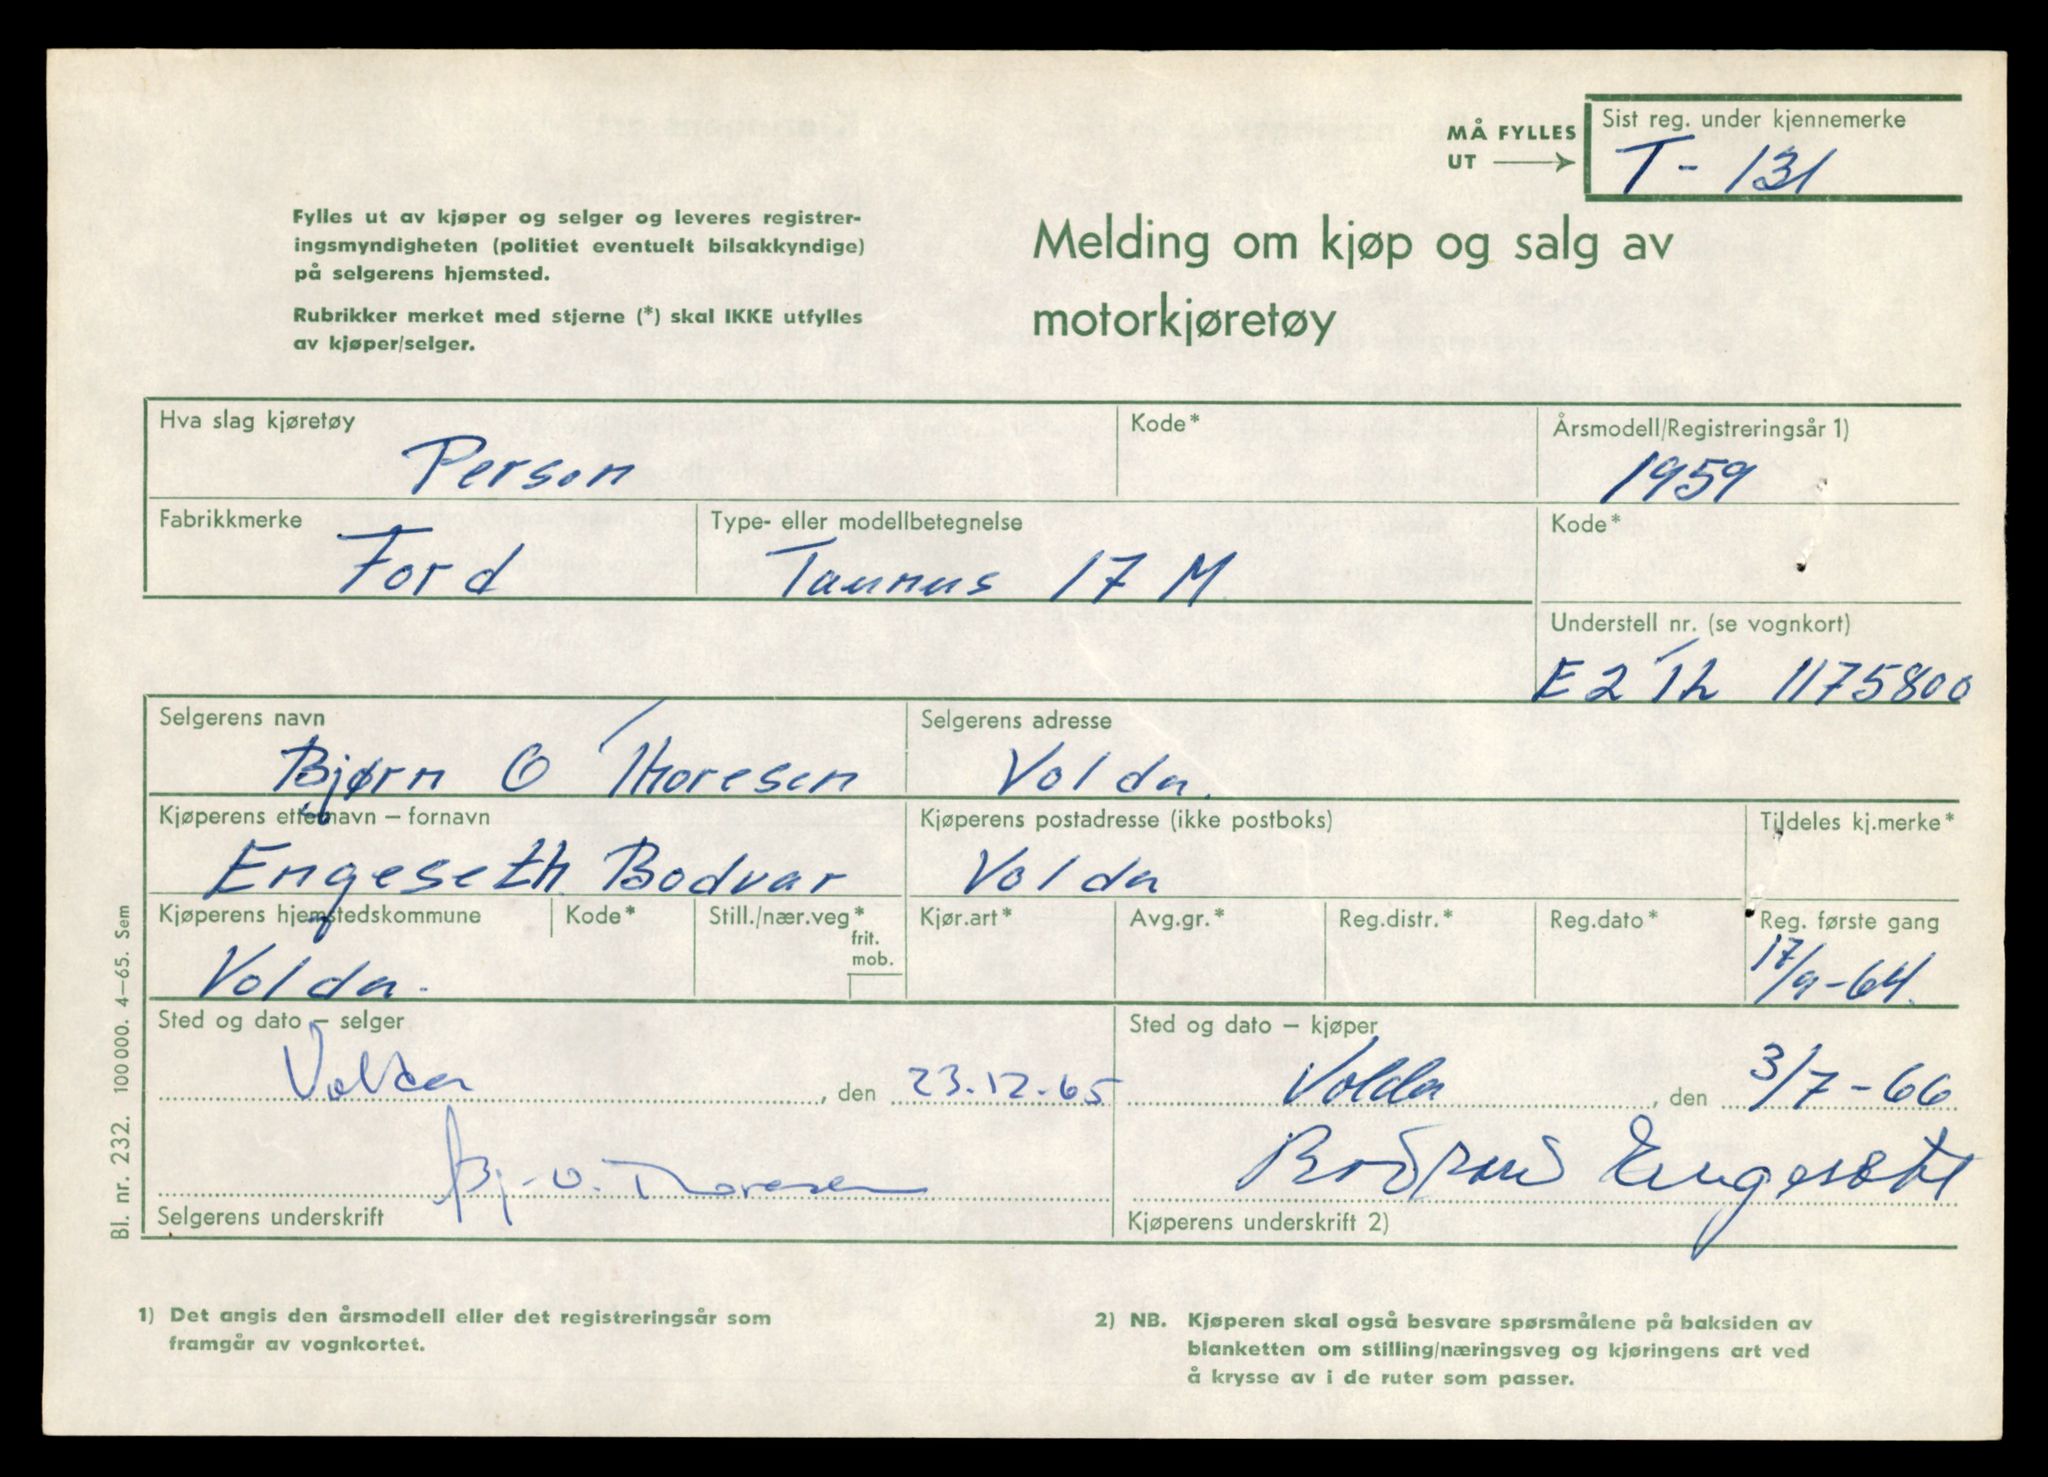 MÅ FYLLES
UT
Sist reg. under kjennemerke
T - 131
Fylles ut av kjøper og selger og leveres registrer-
ingsmyndigheten (politiet eventuelt bilsakkyndige)
på selgerens hjemsted.
Rubrikker merket med stjerne (*) skal IKKE utfylles
av kjøper/selger.
Melding om kjøp og salg av
motorkjøretøy
Hva slag kjøretøy
Person
Kode*
Årsmodell/Registreringsår 1)
1959
Fabrikkmerke
Ford
Type- eller modellbetegnelse
Taunus 17 M
Kode*
Understell nr. (se vognkort)
E2Th 1175800
Selgerens navn
Bjørn O Thoresen
Selgerens adresse
Volda.
Kjøperens etternavn – fornavn
Engeseth Bodvar
Kjøperens postadresse (ikke postboks)
Volda
Tildeles kj.merke*
Kjøperens hjemstedskommune
Volda.
Kode*
Still./nær.veg*
frit.
mob.
Kjør.art*
Avg.gr.*
Reg.distr.*
Reg.dato*
Reg. første gang
17/9-64.
Sted og dato – selger
Volda, den 23.12.65
Bj. O. Thoresen
Selgerens underskrift
Sted og dato – kjøper
Volda, den 3/7-66
Engeseth
Kjøperens underskrift 2)
Bl. nr. 232. 100 000. 4–65. Sem
1) Det angis den årsmodell eller det registreringsår som
framgår av vognkortet.
2) NB. Kjøperen skal også besvare spørsmålene på baksiden av
blanketten om stilling/næringsveg og kjøringens art ved
å krysse av i de ruter som passer.